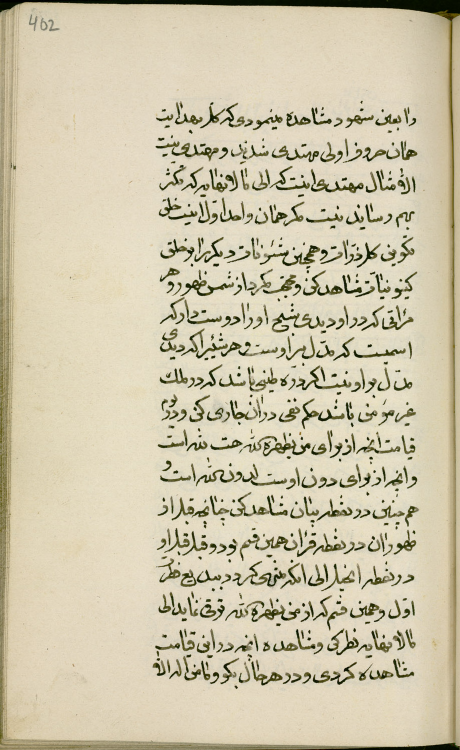 402
را بعین شهود مشاهده مینمودی که کل بهدایت
همان حروف اولی مهتدی شدند و مهتدی نیست
الا مثال مهتدی اینست که الی مالانهایه که متکثر
بهم رساند نیست مکر همان واحد اول اینست خلق
تکوینی کل ذرات و همچنین شئونات دیکر را بر خلق
کینونیات مشاهده کن و محتجب مکرد از شمس ظهور و هر
مرآتی که در او دیدی شبح او را دوست دار که
اسمیست که مدل بر اوست و هر شیئی را که دیدی
مدل بر او نیست اکر ذره طینی باشد که در ملک
غیر مؤمن باشد حکم نفی در آن جاری کن و در یوم
قیامت آنچه از برای من یظهره الله هست لله است
و آنچه از برای دون اوست لدون الله است و
همچنین در نقطه بیان مشاهده کن چنانچه قبل از
ظهور آن در نقطه قرآن همین قسم بود و قبل قبل او
در نقطه انجیل الی آنکه منتهی کردد ببدیع فطرت
اول و همین قسم که از من یظهره الله ترقی نماید الی
مالانهایه نظر کن و مشاهده آنچه در این قیامت
مشاهده کردی و در هر حال بکو و ما من اله الا